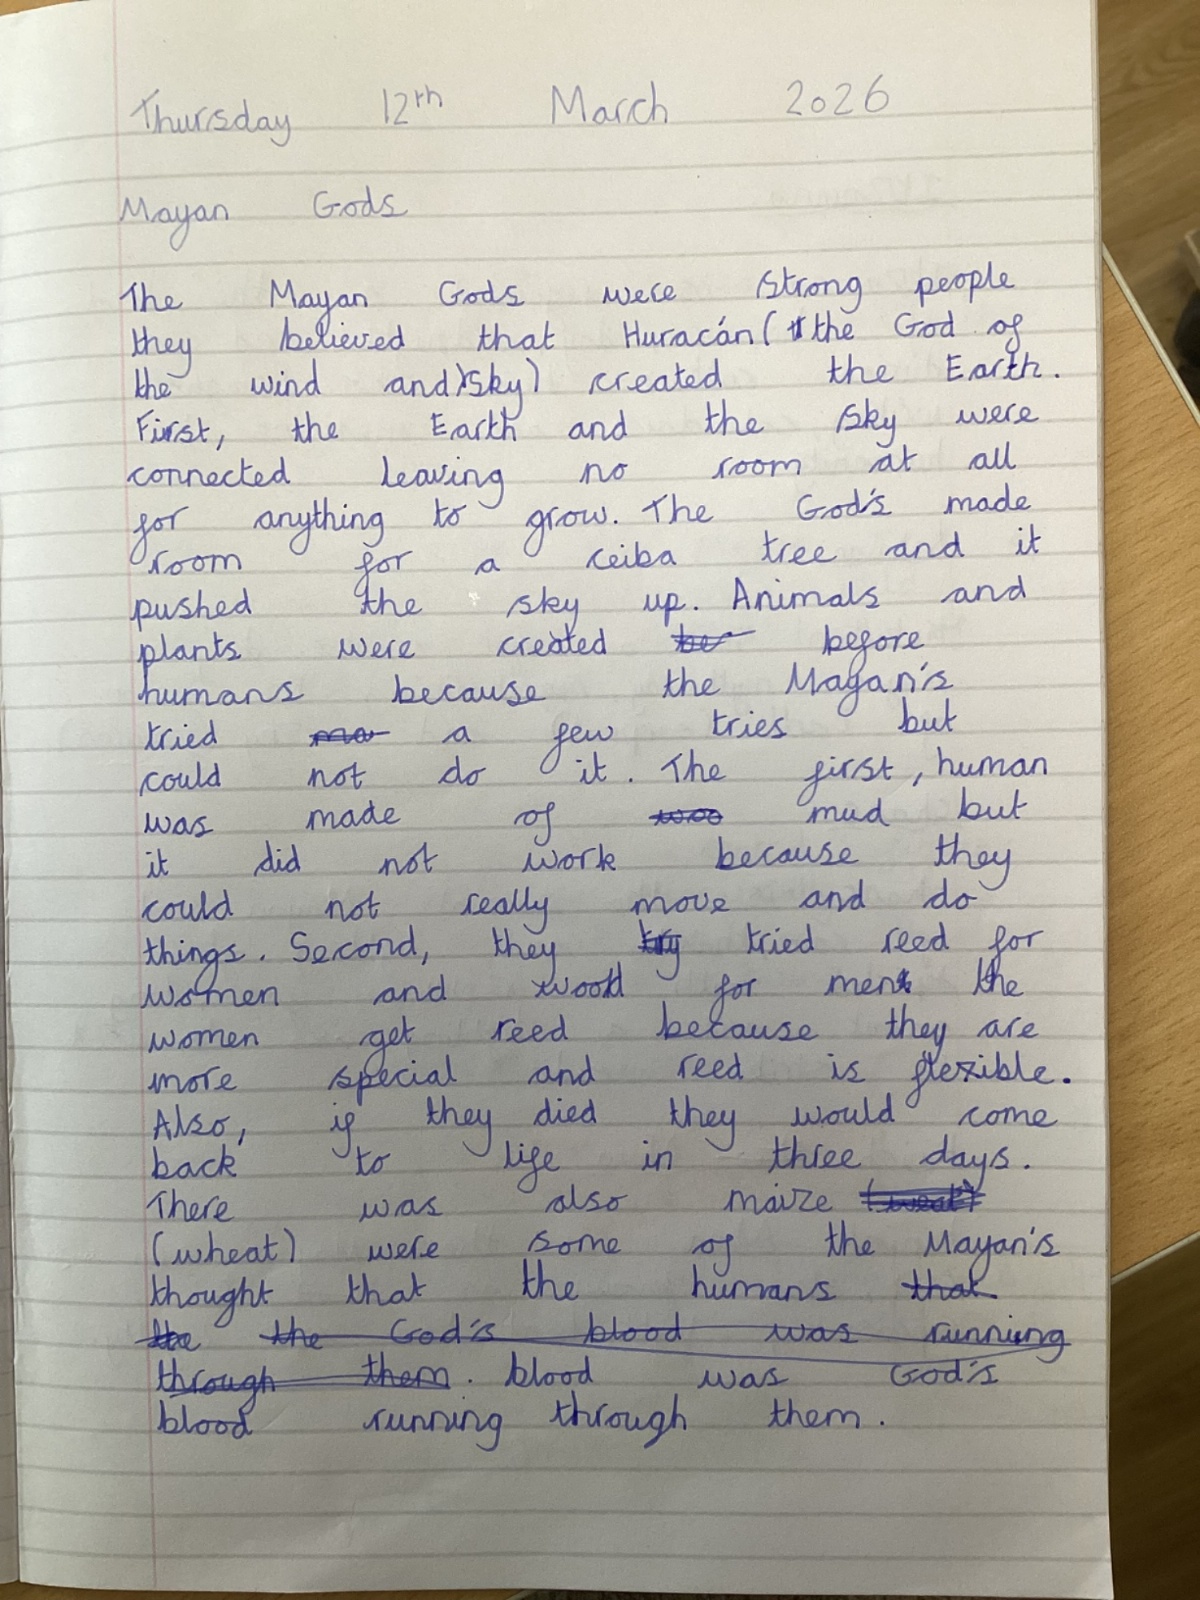 Thursday 12th March 2026
Mayan Gods
The Mayan Gods were strong people
they believed that Huracán (the God of
the wind and sky) created the Earth.
First, the Earth and the sky were
connected leaving no room at all
for anything to grow. The God's made
room for a ceiba tree and it
pushed the sky up. Animals and
plants were created be before
humans because the Mayan's
tried ma a few tries but
could not do it. The first, human
was made of woo mud but
it did not work because they
could not really move and do
things. Second, they try tried reed for
women and wood for men the
women get reed because they are
more special and reed is flexible.
Also, if they died they would come
back to life in three days.
There was also maize
(wheat) were some of the Mayan's
thought that the humans that
the the God's blood was running
through them. blood was God's
blood running through them.